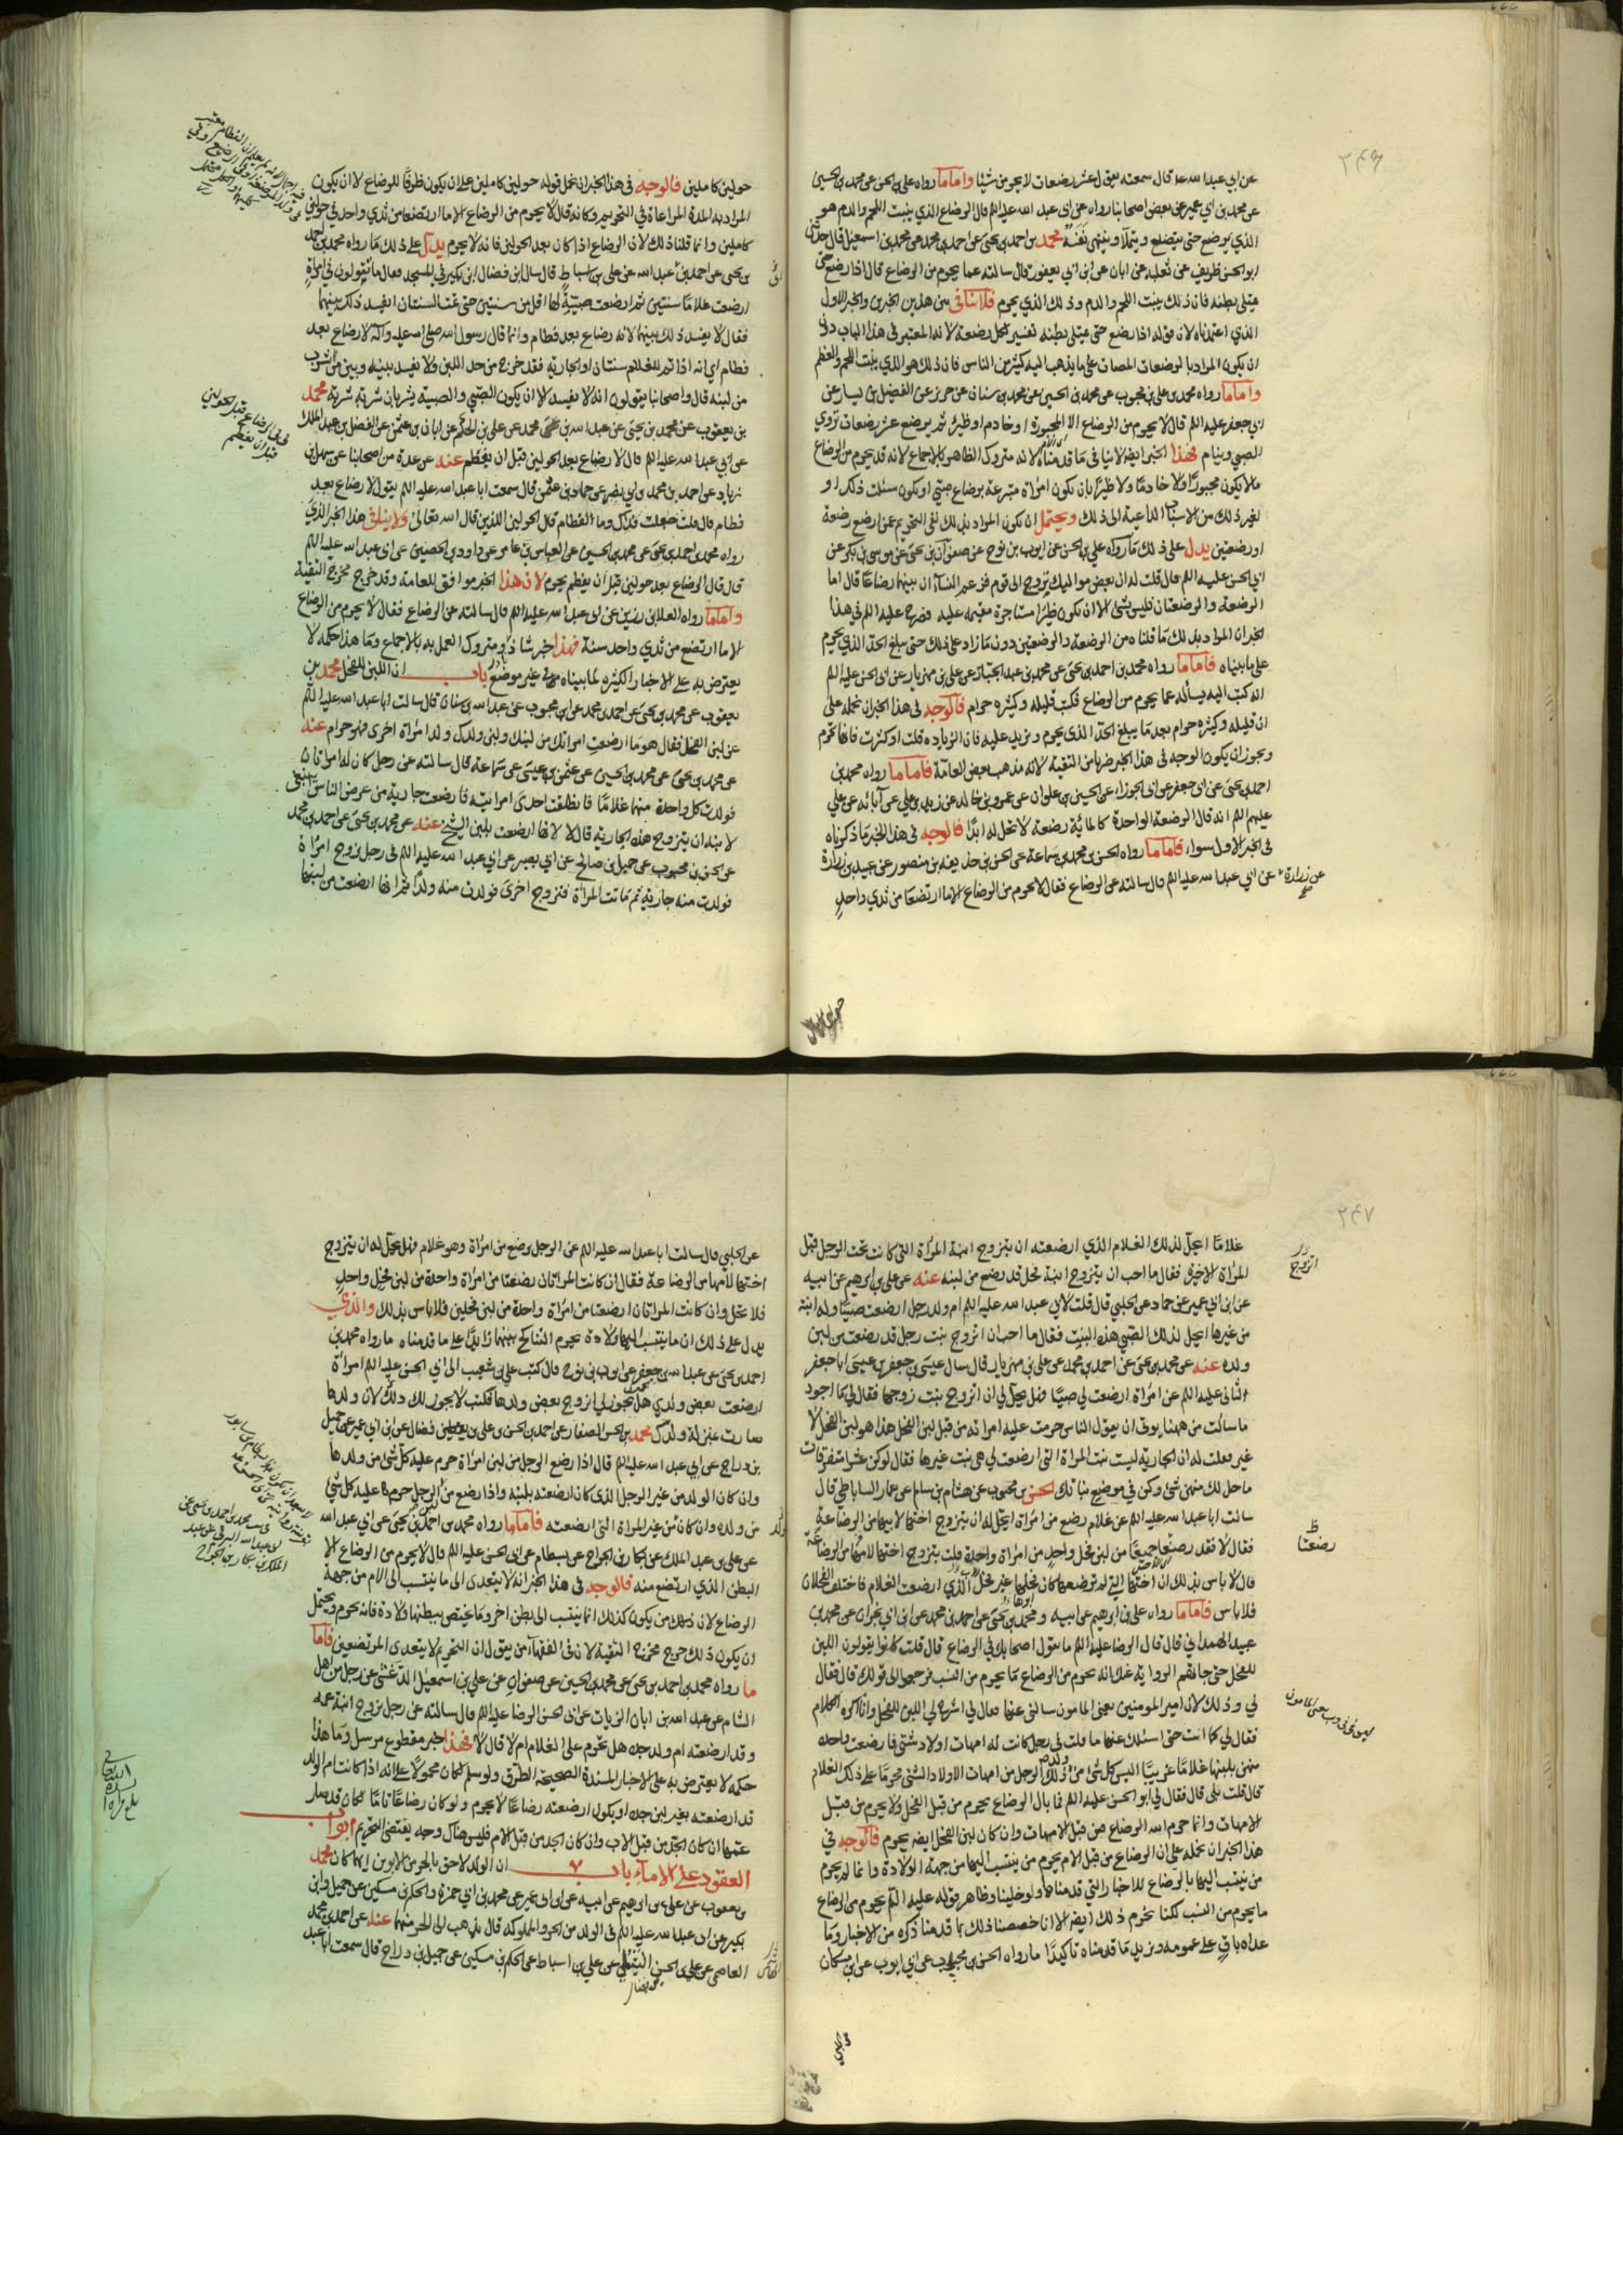 ٢٤٦
عن ابي عبد الله ع قال سمعته يقول عشر رضعات لا يحرمن شيئا واما ما رواه علي بن الحسن عن محمد بن الحسين
عن محمد بن ابي عمير عن بعض اصحابنا رواه عن ابي عبد الله عليه السلم قال الرضاع الذي ينبت اللحم والدم هو
الذي يرضع حتى يتضلع ويتملا وينتهي نفسه محمد بن احمد بن يحيى عن احمد بن محمد عن محمد بن اسمعيل قال حدثني
ابو الحسن ظريف عن ثعلبة عن ابان عن ابن ابي يعفور قال سالته عما يحرم من الرضاع قال اذا رضع حتى
يمتلي بطنه فان ذلك ينبت اللحم والدم وذلك الذي يحرم فلا تنافي بين هذين الخبرين والخبر الاول
الذي اعتمدناه لان قوله اذا رضع حتى يمتلي بطنه تفسير لكل رضعة لانه المعتبر في هذا الباب دون
ان يكون المراد بالرضعات المصات على ما يذهب اليه كثير من الناس فان ذلك هو الذي ينبت اللحم والعظم
واما ما رواه محمد بن علي بن محبوب عن محمد بن الحسين عن محمد بن سنان عن حريز عن الفضيل بن يسار عن
ابي جعفر عليه السلم قال لا يحرم من الرضاع الا المجبورة او خادم او ظئر ثم يرضع عشر رضعات تروي
الصبي وينام فهذا الخبر ايضا لا ينافي ما قدمناه لانه متروك الظاهر بالاجماع لانه قد يحرم من الرضاع
ما لا يكون مجبورة ولا خادما ولا ظئرا بان تكون امراة متبرعة برضاع صبي او تكون سئلت ذلك او
لغير ذلك من الاسباب الداعية الى ذلك ويحتمل ان يكون المراد بذلك نفي التحريم عمن ارضع رضعة
او رضعتين يدل على ذلك ما رواه علي بن الحسن عن ايوب بن نوح عن صفوان بن يحيى عن موسى بن بكر عن
ابي الحسن عليه السلم قال قلت له ان بعض مواليك تزوج الى قوم فزعم النساء ان بينهما رضاعا قال اما
الرضعة والرضعتان فليس بشئ الا ان يكون ظئرا مستاجرة مقيمة عليه فصرح عليه السلم في هذا
الخبر ان المراد بذلك ما قلناه من الرضعة والرضعتين دون ما زاد على ذلك حتى يبلغ الحد الذي يحرم
على ما بيناه فاما ما رواه محمد بن احمد بن يحيى عن محمد بن عبد الجبار عن علي بن مهزيار عن ابي الحسن عليه السلم
انه كتب اليه يسأله عما يحرم من الرضاع فكتب قليله وكثيره حرام فالوجه في هذا الخبر ان نحمله على
ان قليله وكثيره حرام بعد ما يبلغ الحد الذي يحرم ويزيد عليه فان الزيادة قلت او كثرت فانها تحرم
ويجوز ان يكون الوجه في هذا الخبر ضربا من التقية لانه مذهب بعض العامة فاما ما رواه محمد بن
احمد بن يحيى عن ابي جعفر عن ابي الجوزاء عن الحسين بن علوان عن عمرو بن خالد عن زيد بن علي عن آبائه عن علي
عليهم السلم انه قال الرضعة الواحدة كالمائة رضعة لا تحل له ابدا فالوجه في هذا الخبر ما ذكرناه
في الخبر الاول سواء فاما ما رواه الحسن بن محمد بن سماعة عن الحسن بن حذيفة بن منصور عن عبيد بن زرارة
عن زرارة عن ابي عبد الله عليه السلم قال سالته عن الرضاع فقال لا يحرم من الرضاع الا ما ارتضعا من ثدي واحد
حولين كاملين فالوجه في هذا الخبر ان نحمل قوله حولين كاملين على ان يكون ظرفا للرضاع لا ان يكون
المراد به المدة المراعاة في التحريم وكانه قال لا يحرم من الرضاع الا ما ارتضعا من ثدي واحد في حولين
كاملين وانما قلنا ذلك لان الرضاع اذا كان بعد الحولين فانه لا يحرم يدل على ذلك ما رواه محمد بن احمد
بن يحيى عن احمد بن عبد الله عن علي بن اسباط قال سال ابن فضال ابن بكير في المسجد فقال ما تقولون في امراة
ارضعت غلاما سنتين ثم ارضعت صبية لها اقل من سنتين حتى تمت السنتان ايفسد ذلك بينهما
فقال لا يفسد ذلك بينهما لانه رضاع بعد فطام وانما قال رسول الله صلى الله عليه وآله لا رضاع بعد
فطام اي انه اذا تم للغلام سنتان او الجارية فقد خرج من حد اللبن ولا يفسد بينه وبين من شرب
من لبنه قال واصحابنا يقولون انه لا يفسد الا ان يكون الصبي والصبية يشربان شربة شربة محمد
بن يعقوب عن محمد بن يحيى عن عبد الله بن محمد عن علي بن الحكم عن ابان بن عثمن عن الفضل بن عبد الملك
عن ابي عبد الله عليه السلم قال الرضاع بعد الحولين قبل ان يفطم عنه عن عدة من اصحابنا عن سهل بن
زياد عن احمد بن محمد بن ابي نصر عن حماد بن عثمن قال سمعت ابا عبد الله عليه السلم يقول لا رضاع بعد
فطام قال قلت جعلت فداك وما الفطام قال الحولين الذين قال الله تعالى ولا ينافي هذا الخبر الذي
رواه محمد بن احمد بن يحيى عن محمد بن الحسين عن العباس بن عامر عن داود بن الحصين عن ابي عبد الله عليه السلم
قال قال الرضاع بعد حولين قبل ان يفطم يحرم لان هذا الخبر موافق للعامة وقد خرج مخرج التقية
واما ما رواه العلا بن رزين عن ابي عبد الله عليه السلم قال سالته عن الرضاع فقال لا يحرم من الرضاع
الا ما ارتضع من ثدي واحد سنة فهذا خبر شاذ ومتروك العمل به بالاجماع وما هذا حكمه لا
يعترض به على الاخبار الكثيرة لما بيناه في غير موضع باب ان اللبن للفحل محمد بن
يعقوب عن محمد بن يحيى عن احمد بن محمد عن ابن محبوب عن عبد الله بن سنان قال سالت ابا عبد الله عليه السلم
عن لبن الفحل فقال هو ما ارضعت امراتك من لبنك ولبن ولدك ولد امراة اخرى فهو حرام عنه
عن محمد بن يحيى عن محمد بن الحسين عن عثمن بن عيسى عن سماعة قال سالته عن رجل كان له امراتان
فولدت كل واحدة منهما غلاما فانطلقت احدى امراتيه فارضعت جارية من عرض الناس اينبغي
لابنه ان يتزوج هذه الجارية قال لا لانها ارضعت بلبن الشيخ عنه عن محمد بن يحيى عن احمد بن محمد
عن الحسن بن محبوب عن جميل بن صالح عن ابي بصير عن ابي عبد الله عليه السلم في رجل تزوج امراة
فولدت منه جارية ثم ماتت المراة فتزوج اخرى فولدت منه ولدا ثم انها ارضعت من لبنها
٢٤٧
غلاما ايحل لذلك الغلام الذي ارضعته ان يتزوج ابنة المراة التي كانت تحت الرجل قبل
المراة الاخيرة فقال ما احب ان يتزوج ابنة فحل قد رضع من لبنه عنه عن علي بن ابرهيم عن ابيه
عن ابن ابي عمير عن حماد عن الحلبي قال قلت لابي عبد الله عليه السلم ام ولد رجل ارضعت صبيا وله ابنة
من غيرها ايحل لذلك الصبي هذه البنت فقال ما احب ان اتزوج بنت رجل قد رضعت من لبن
ولده عنه عن محمد بن يحيى عن احمد بن محمد عن علي بن مهزيار قال سال عيسى بن جعفر بن عيسى ابا جعفر
الثاني عليه السلم عن امراة ارضعت لي صبيا فهل يحل لي ان اتزوج بنت زوجها فقال لي ما اجود
ما سالت من ههنا يوتى ان يقول الناس حرمت عليه امراته من قبل لبن الفحل هذا هو لبن الفحل لا
غير فقلت له ان الجارية ليست بنت المراة التي ارضعت لي هي بنت غيرها فقال لو كن عشرا متفرقات
ما حل لك منهن شئ وكن في موضع بناتك الحسن بن محبوب عن هشام بن سالم عن عمار الساباطي قال
سالت ابا عبد الله عليه السلم عن غلام رضع من امراة ايحل له ان يتزوج اختها لابيها من الرضاعة
فقال لا فقد رضعا جميعا من لبن فحل واحد من امراة واحدة قلت يتزوج اختها لامها من الرضاعة
قال لا باس بذلك ان اختها التي لم ترضعه كان فحلها غير فحل التي ارضعت الغلام فاختلف الفحلان
فلا باس فاما ما رواه علي بن ابرهيم عن ابيه ومحمد بن يحيى عن احمد بن محمد عن ابن ابي نجران عن محمد بن
عبيد الهمداني قال قال الرضا عليه السلم ما يقول اصحابك في الرضاع قال قلت كانوا يقولون اللبن
للفحل حتى جاءتهم الرواية عنك انه يحرم من الرضاع ما يحرم من النسب فرجعوا الى قولك قال فقال
لي وذلك لان امير المومنين يعني المامون سالني عنها فقال لي اشرح لي اللبن للفحل وانا اكره الكلام
فقال لي كما انت حتى اسئلك عنها ما قلت في رجل كانت له امهات اولاد شتى فارضعت واحدة
منهن بلبنها غلاما غريبا اليس كل شئ من ولد ذلك الرجل من امهات الاولاد الشتى محرما على ذلك الغلام
قال قلت بلى قال فقال لي ابو الحسن عليه السلم فما بال الرضاع يحرم من قبل الفحل ولا يحرم من قبل
الامهات وانما حرم الله الرضاع من قبل الامهات وان كان لبن الفحل ايضا يحرم فالوجه في
هذا الخبر ان نحمله على ان الرضاع من قبل الام يحرم من ينتسب اليها من جهة الولادة وانما لم يحرم
من ينتسب اليها بالرضاع للاخبار التي قدمناها ولو خلينا وظاهر قوله عليه السلم يحرم من الرضاع
ما يحرم من النسب لكنا نحرم ذلك ايضا الا انا خصصنا ذلك بما قدمنا ذكره من الاخبار وما
عداه باق على عمومه ويزيد ما قدمناه تاكيدا ما رواه الحسن بن محبوب عن ابي ايوب عن ابن مسكان
عن الحلبي قال سالت ابا عبد الله عليه السلم عن الرجل يرضع من امراة وهو غلام فهل يحل له ان يتزوج
اختها لامها من الرضاعة فقال ان كانت المراتان رضعتا من امراة واحدة من لبن فحل واحد
فلا تحل وان كانت المراتان ارضعتا من امراة واحدة من لبن فحلين فلا باس بذلك والذي
يدل على ذلك ان ما ينتسب اليها ولادة يحرم التناكح بينهما زائدا على ما قدمناه ما رواه محمد بن
احمد بن يحيى عن عبد الله بن جعفر عن ايوب بن نوح قال كتب علي بن شعيب الى ابي الحسن عليه السلم امراة
ارضعت بعض ولدي هل يجوز لي ان اتزوج بعض ولدها فكتب لا يجوز لك ذلك لان ولدها
صارت بمنزلة ولدك محمد بن الحسن الصفار عن احمد بن الحسن بن علي بن فضال عن ابن ابي عمير عن جميل
بن دراج عن ابي عبد الله عليه السلم قال اذا رضع الرجل من لبن امراة حرم عليه كل شئ من ولدها
وان كان الولد من غير الرجل الذي كان ارضعته بلبنه واذا رضع من لبن الرجل حرم عليه كل شئ
من ولده وان كان من غير المراة التي ارضعته فاما ما رواه محمد بن احمد بن يحيى عن ابي عبد الله
عن علي بن عبد الملك عن بكار بن الجراح عن بسطام عن ابي الحسن عليه السلم قال لا يحرم من الرضاع الا
البطن الذي ارتضع منه فالوجه في هذا الخبر انه لا يتعدى الى ما ينتسب الى الام من جهة
الرضاع لان ذلك من يكون كذلك انما ينتسب الى بطن اخر وما يختص ببطنها ولادة فانه يحرم ويحتمل
ان يكون ذلك خرج مخرج التقية لان في الفقهاء من يقول ان التحريم لا يتعدى المرتضعين فاما
ما رواه محمد بن احمد بن يحيى عن محمد بن الحسين عن صفوان عن علي بن اسمعيل الدغشي عن رجل من اهل
الشام عن عبد الله بن ابان الزيات عن ابي الحسن الرضا عليه السلم قال سالته عن رجل تزوج ابنة عمه
وقد ارضعته ام ولد جده هل تحرم على الغلام ام لا قال لا فهذا خبر مقطوع مرسل وما هذا
حكمه لا يعترض به على الاخبار المسندة الصحيحة الطرق ولو سلم لكان محمولا على انه اذا كانت ام الولد
قد ارضعته بغير لبن جده او يكون ارضعته رضاعا لا يحرم ولو كان رضاعا تاما لكان قد صار
عمها ان كان الجد من قبل الاب وان كان الجد من قبل الام فليس هناك وجه يقتضي التحريم ابواب
العقود على الاماء باب ان الولد لاحق بالحر من الابوين ايهما كان محمد
بن يعقوب عن علي بن ابرهيم عن ابيه عن ابن ابي عمير عن محمد بن ابي حمزة والحكم بن مسكين عن جميل وابن
بكير عن ابي عبد الله عليه السلم في الولد من الحر والمملوكة قال يذهب الى الحر منهما عنه عن احمد بن محمد
العاصمي عن علي بن الحسن التيملي عن علي بن اسباط عن الحكم بن مسكين عن جميل بن دراج قال سمعت ابا عبد